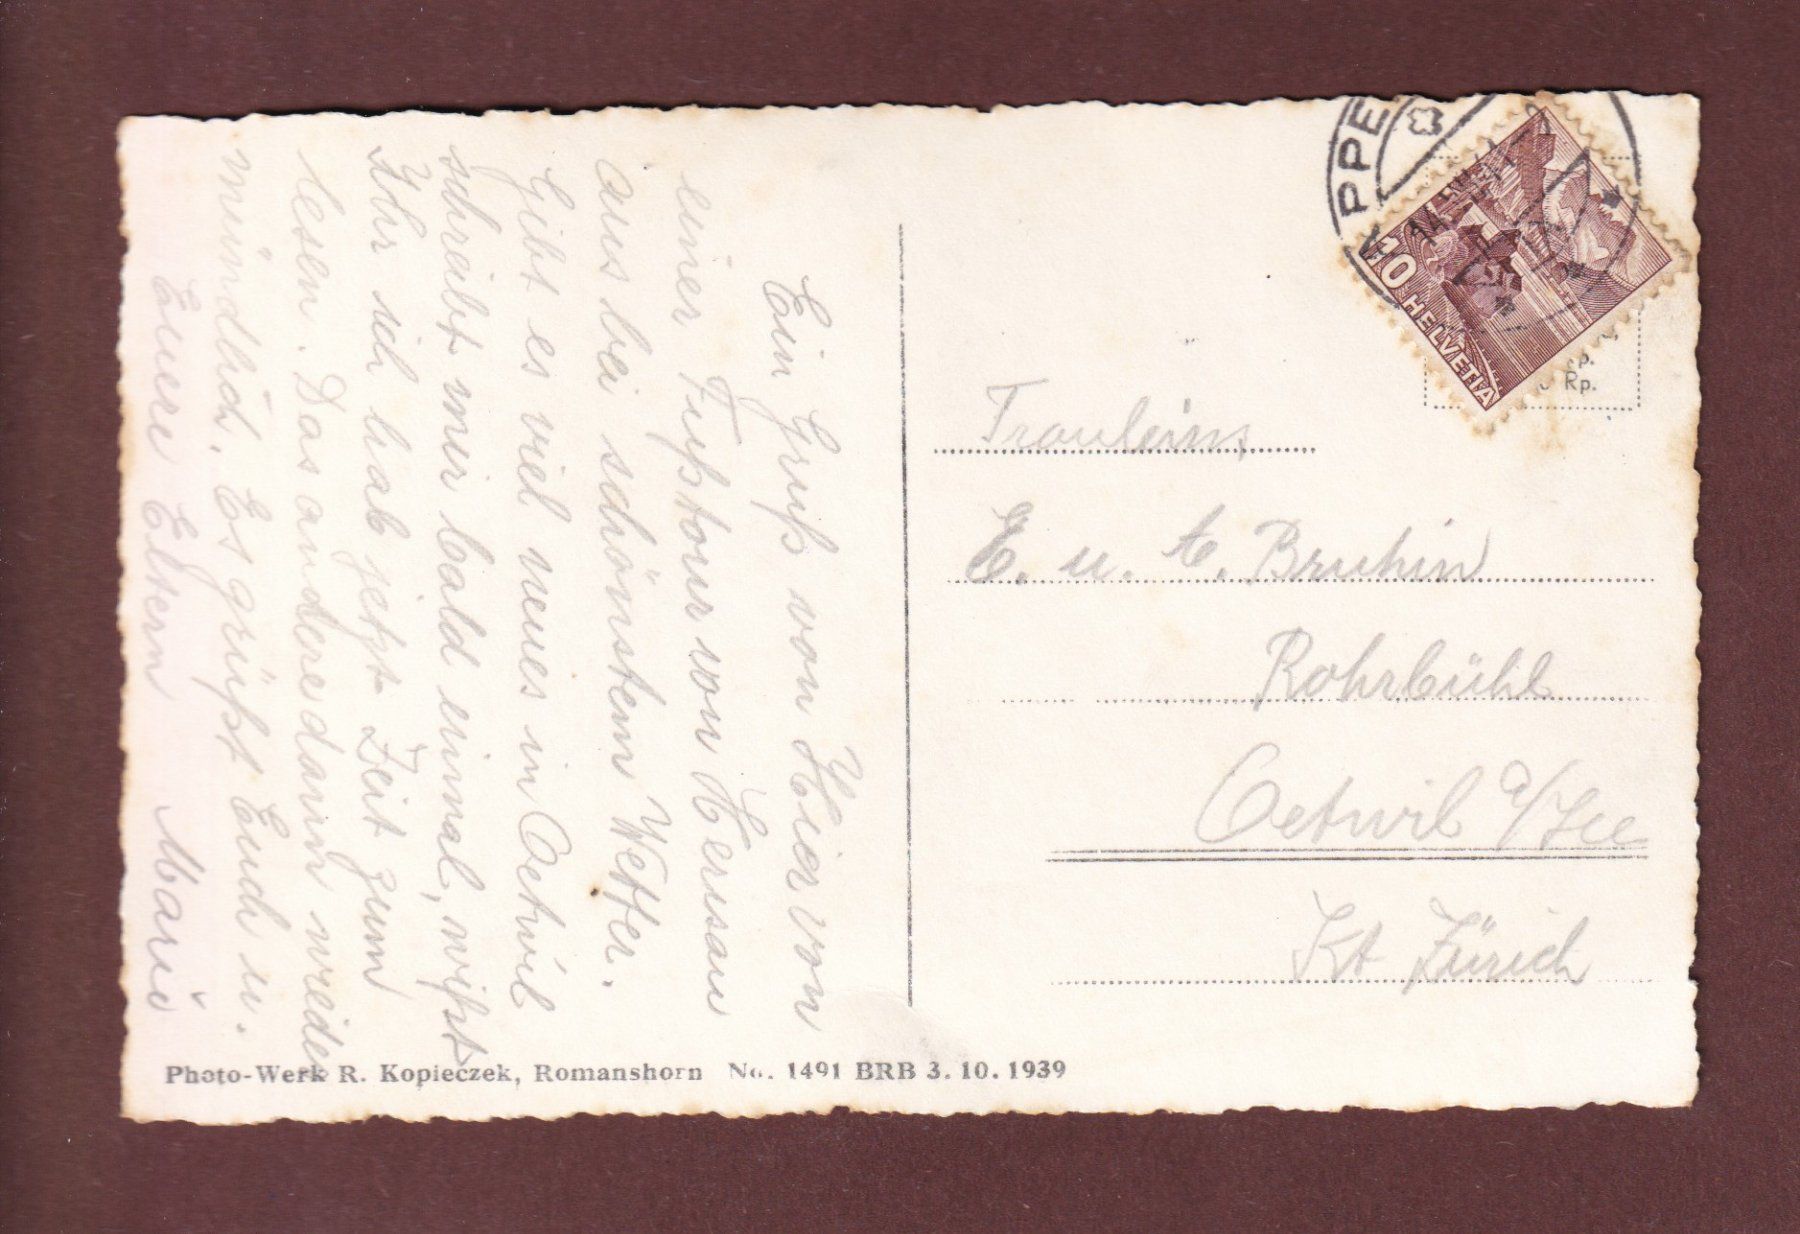 Ein Gruß von Hier von
einer Fußtour von Herisau
aus bei schönstem Wetter.
Gibt es viel neues in Oetwil
schreibt mir bald einmal, wißt
Ihr ich hab jetzt Zeit zum
lesen. Das andere dann wieder
mündlich. Es grüßt Euch u.
Euere Eltern Marie
Fräuleins
E. u. A. Bruhin
Rohrbühl
Oetwil a/See
Kt Zürich
APPE
14.
10 HELVETIA
Rp.
Photo-Werk R. Kopieczek, Romanshorn No. 1491 BRB 3. 10. 1939